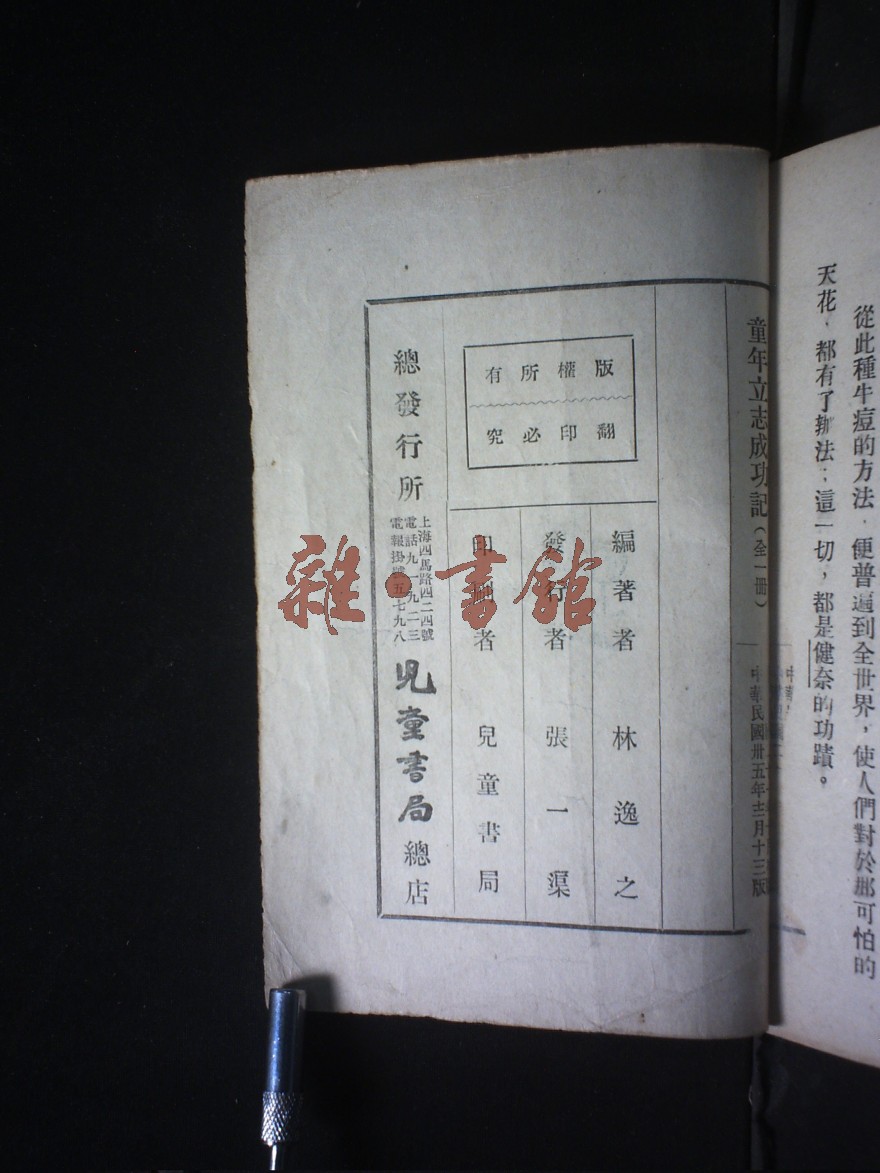 從此種牛痘的方法，便普遍到全世界，使人們對於那可怕的
天花，都有了辦法；這一切，都是健奈的功蹟。
童年立志成功記（全一冊）
中華民國卅五年十二月十三版
版權所有
翻印必究
編著者 林逸之
發行者 張一渠
印刷者 兒童書局
總發行所
上海四馬路四二四號
電話九一九二三
電報掛號五七九八
兒童書局總店
雜·書館